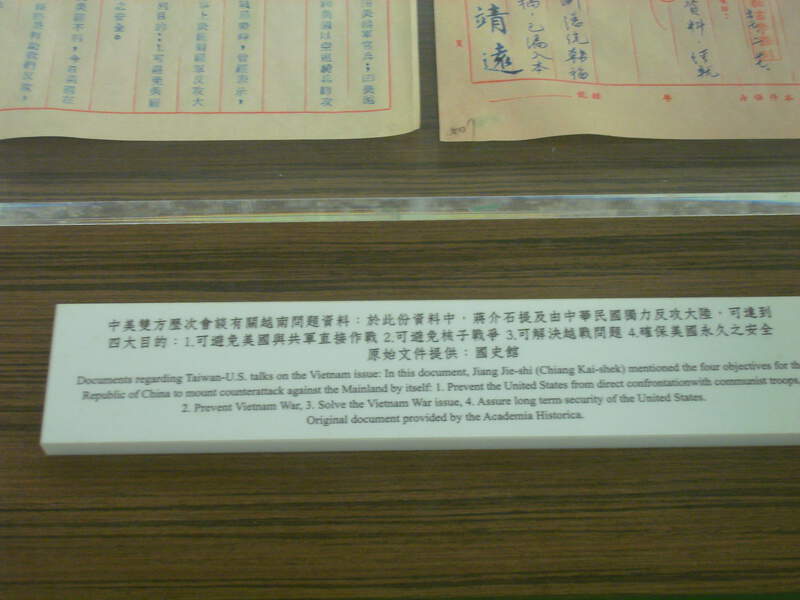 資料
靖遠
曾經表示，
之安全。
中美雙方歷次會談有關越南問題資料：於此份資料中，蔣介石提及由中華民國獨力反攻大陸，可達到
四大目的：1.可避免美國與共軍直接作戰 2.可避免核子戰爭 3.可解決越戰問題 4.確保美國永久之安全
原始文件提供：國史館
Documents regarding Taiwan-U.S. talks on the Vietnam issue: In this document, Jiang Jie-shi (Chiang Kai-shek) mentioned the four objectives for th
Republic of China to mount counterattack against the Mainland by itself: 1. Prevent the United States from direct confrontationwith communist troops,
2. Prevent Vietnam War, 3. Solve the Vietnam War issue, 4. Assure long term security of the United States.
Original document provided by the Academia Historica.